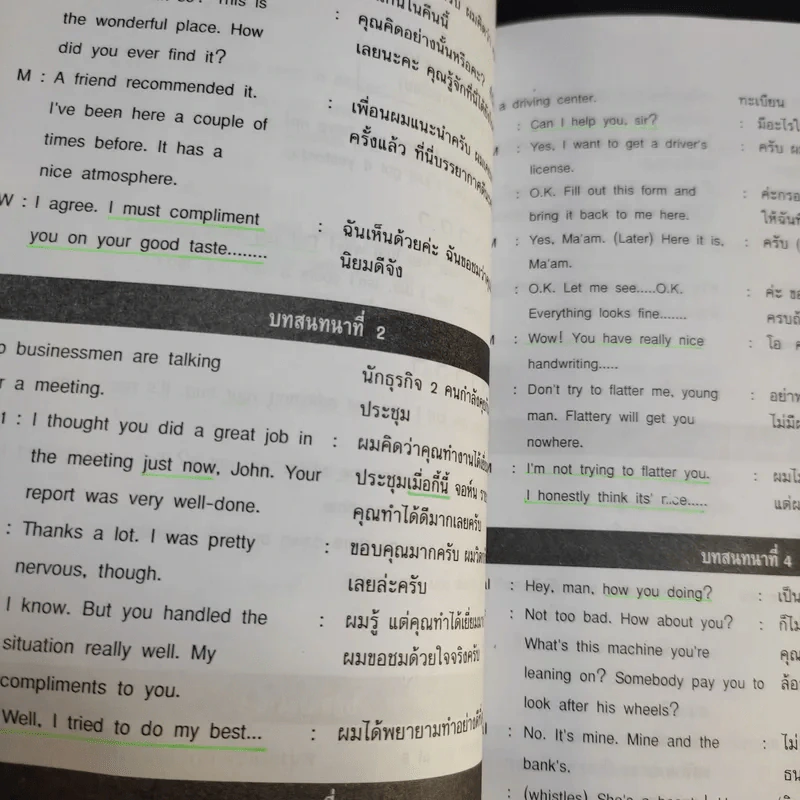 the wonderful place. How
did you ever find it?
M : A friend recommended it.
I've been here a couple of
times before. It has a
nice atmosphere.
W : I agree. I must compliment
you on your good taste........
: คุณคิดอย่างนั้นหรือคะ?
เลยนะคะ คุณรู้จักที่นี่ได้
: เพื่อนผมแนะนำครับ
ครั้งแล้ว ที่นี่บรรยากาศ
: ฉันเห็นด้วยค่ะ ฉันขอชมว่า
นิยมดีจัง
บทสนทนาที่ 2
businessmen are talking
a meeting.
: I thought you did a great job in
the meeting just now, John. Your
report was very well-done.
: Thanks a lot. I was pretty
nervous, though.
I know. But you handled the
situation really well. My
compliments to you.
Well, I tried to do my best...
นักธุรกิจ 2 คนกำลัง
ประชุม
: ผมคิดว่าคุณทำงานได้
ประชุมเมื่อกี้นี้ จอห์น
คุณทำได้ดีมากเลยครับ
: ขอบคุณมากครับ
เลยล่ะครับ
: ผมรู้ แต่คุณทำได้
ผมขอชมด้วยใจจริงครับ
: ผมได้พยายามทำอย่างดี
a driving center.
: Can I help you, sir?
: Yes, I want to get a driver's
license.
: O.K. Fill out this form and
bring it back to me here.
: Yes, Ma'am. (Later) Here it is,
Ma'am.
: O.K. Let me see.....O.K.
Everything looks fine.......
: Wow! You have really nice
handwriting.....
: Don't try to flatter me, young
man. Flattery will get you
nowhere.
: I'm not trying to flatter you.
I honestly think its' nice.....
ทะเบียน
: มีอะไร
: ครับ
: ค่ะกรอ
ให้ฉัน
: ครับ (
: ค่ะ ขอ
: โอ
: อย่า
ไม่มี
บทสนทนาที่ 4
: Hey, man, how you doing?
: Not too bad. How about you?
What's this machine you're
leaning on? Somebody pay you to
look after his wheels?
: No. It's mine. Mine and the
bank's.
: (whistles)
: เป็น
: ก็ไม่
คุณ
ล้อ
: ไม่